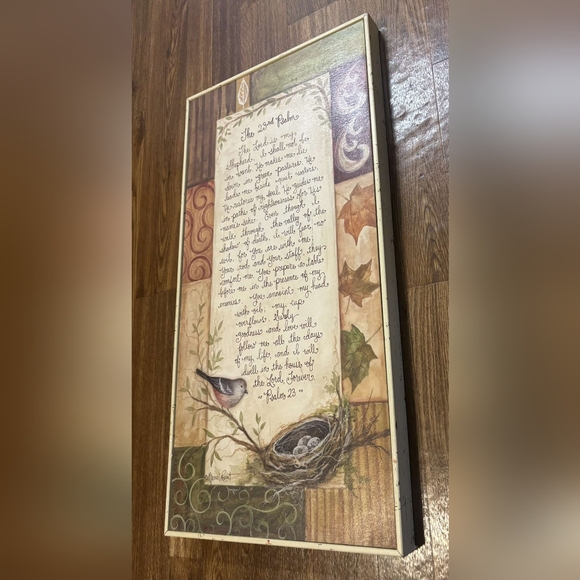 The 23rd Psalm
The Lord is my
shepherd. I shall not be
in want. He makes me lie
down in green pastures. He
leads me beside quiet waters.
He restores my soul. He guides me
in paths of righteousness for His
name sake. Even though I
walk through the valley of the
shadow of death, I will fear no
evil, for You are with me;
Your rod and Your staff, they
comfort me. You prepare a table
before me in the presence of my
enemies. You anoint my head
with oil; my cup
overflows. Surely
goodness and love will
follow me all the days
of my life, and I will
dwell in the house of
the Lord Forever.
"Psalm 23"